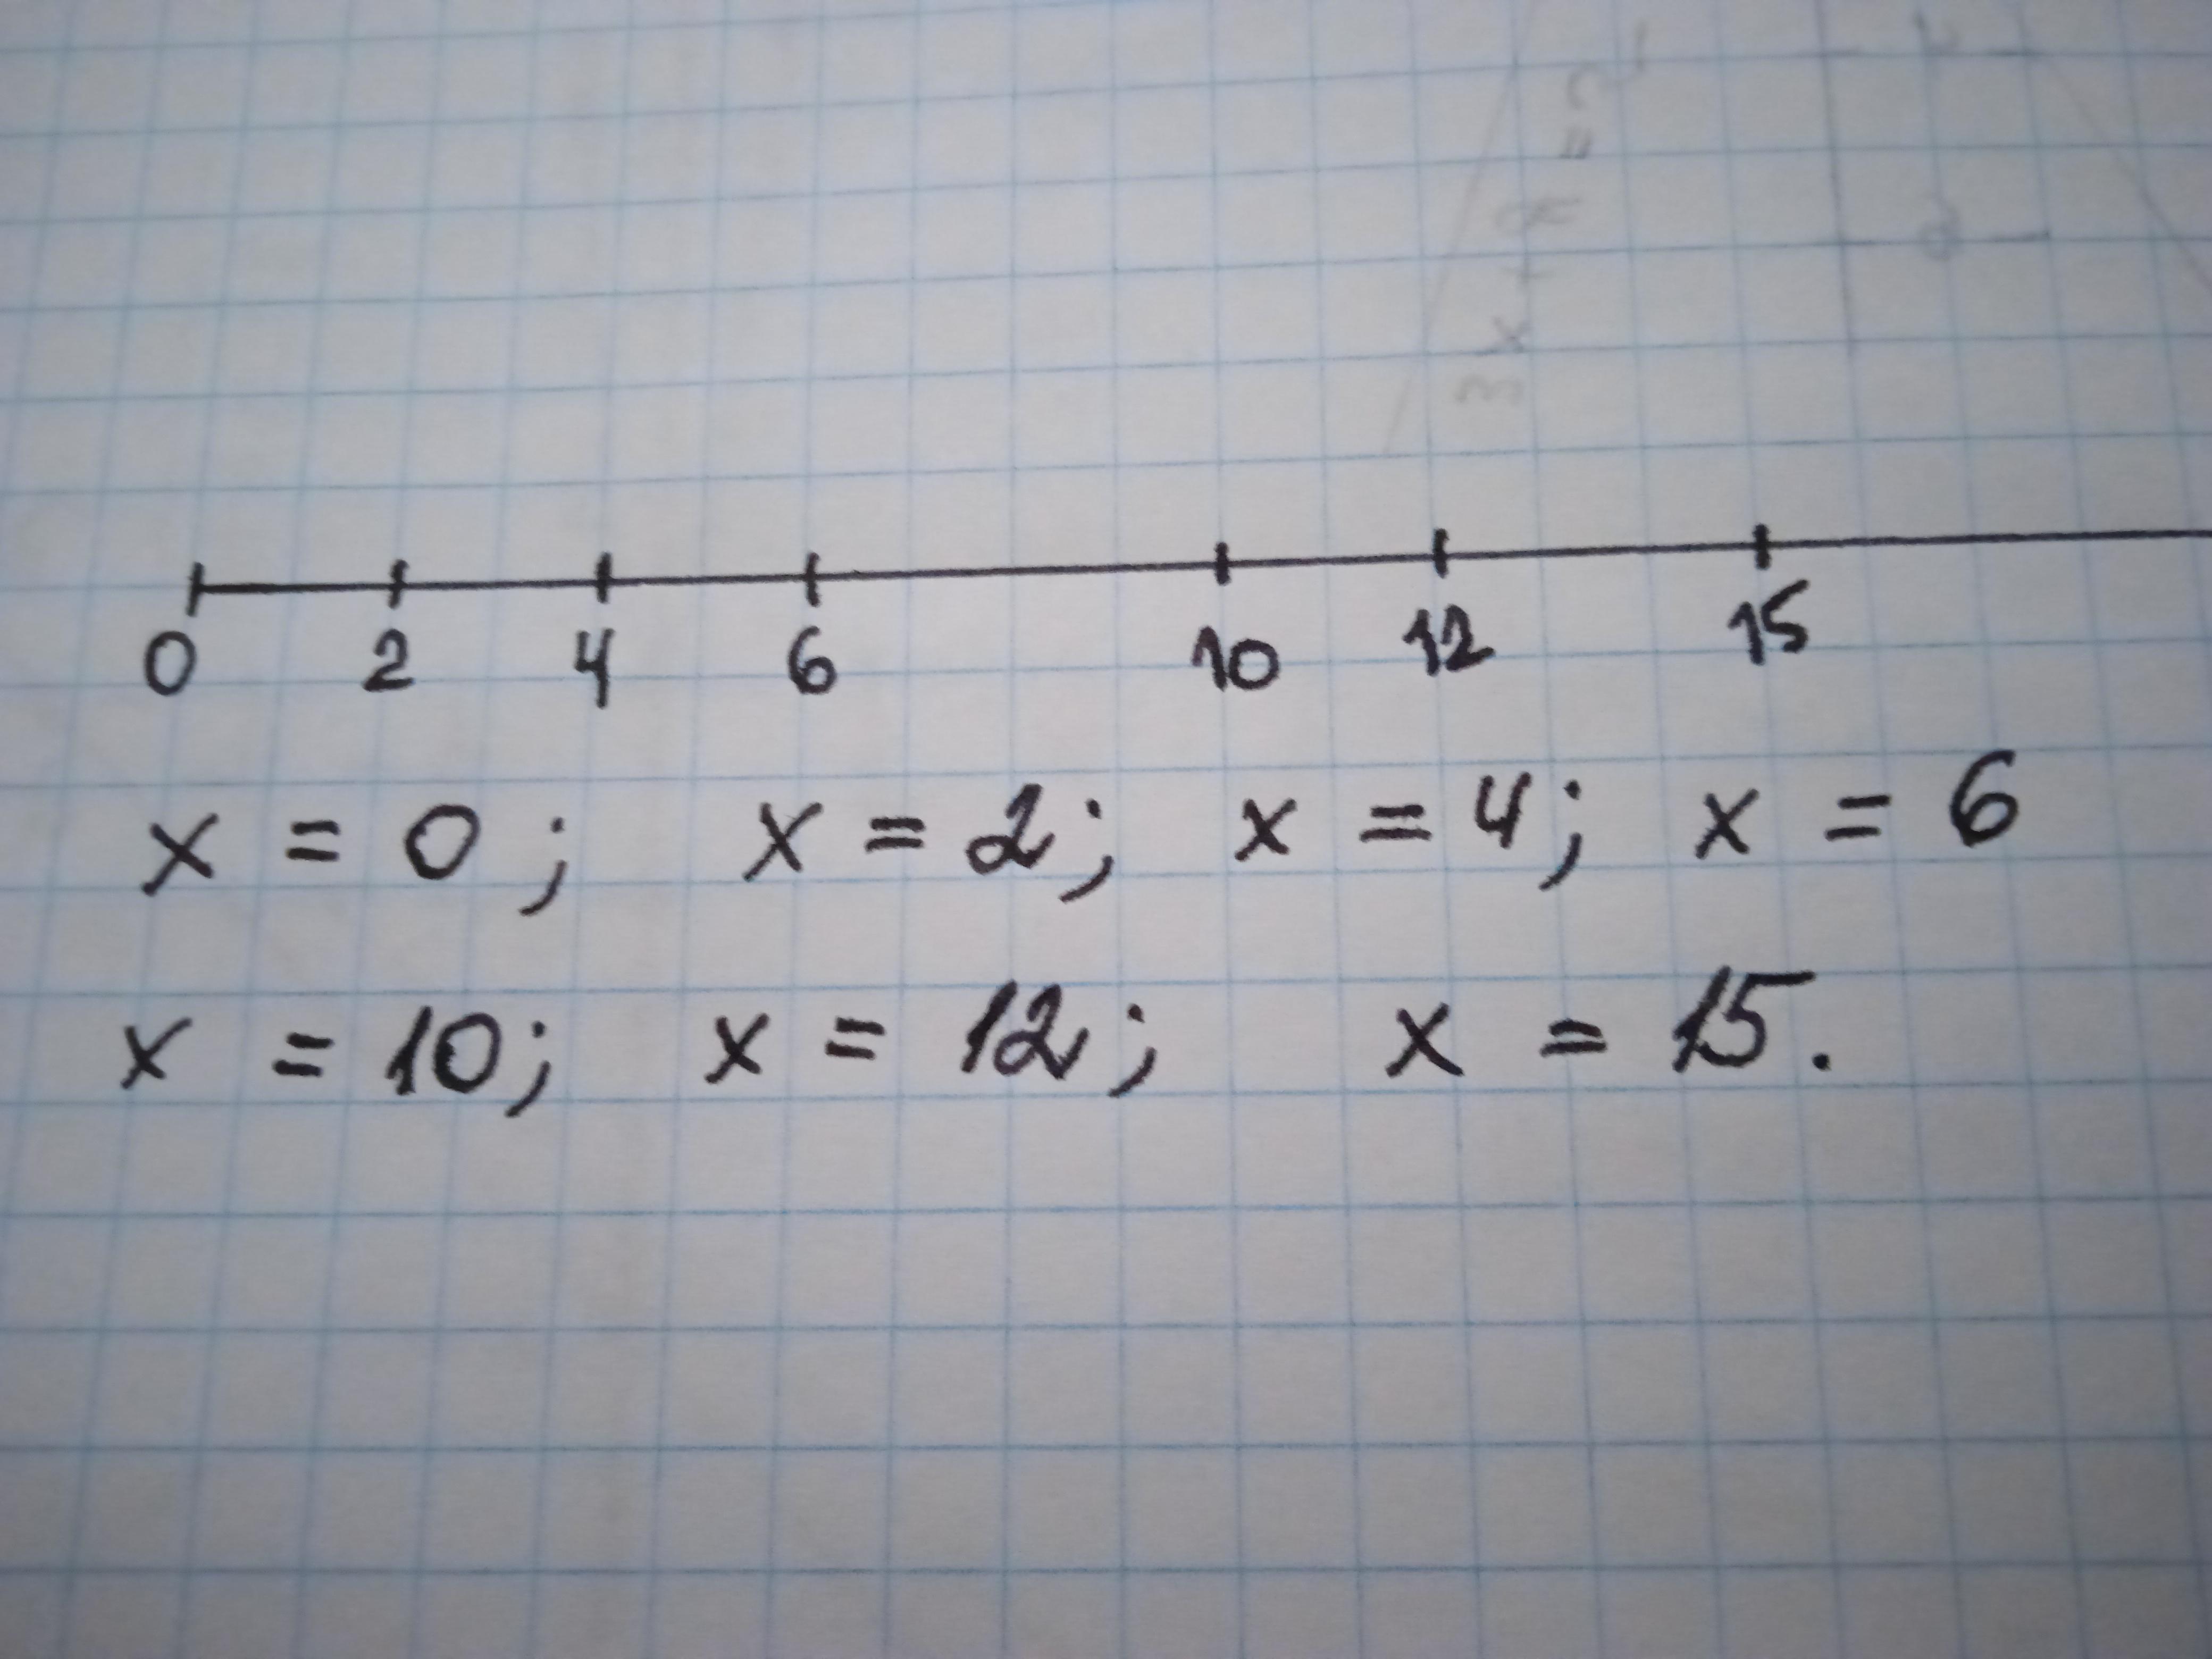 0 2 4 6 10 12 15
x = 0; x = 2; x = 4; x = 6
x = 10; x = 12; x = 15.